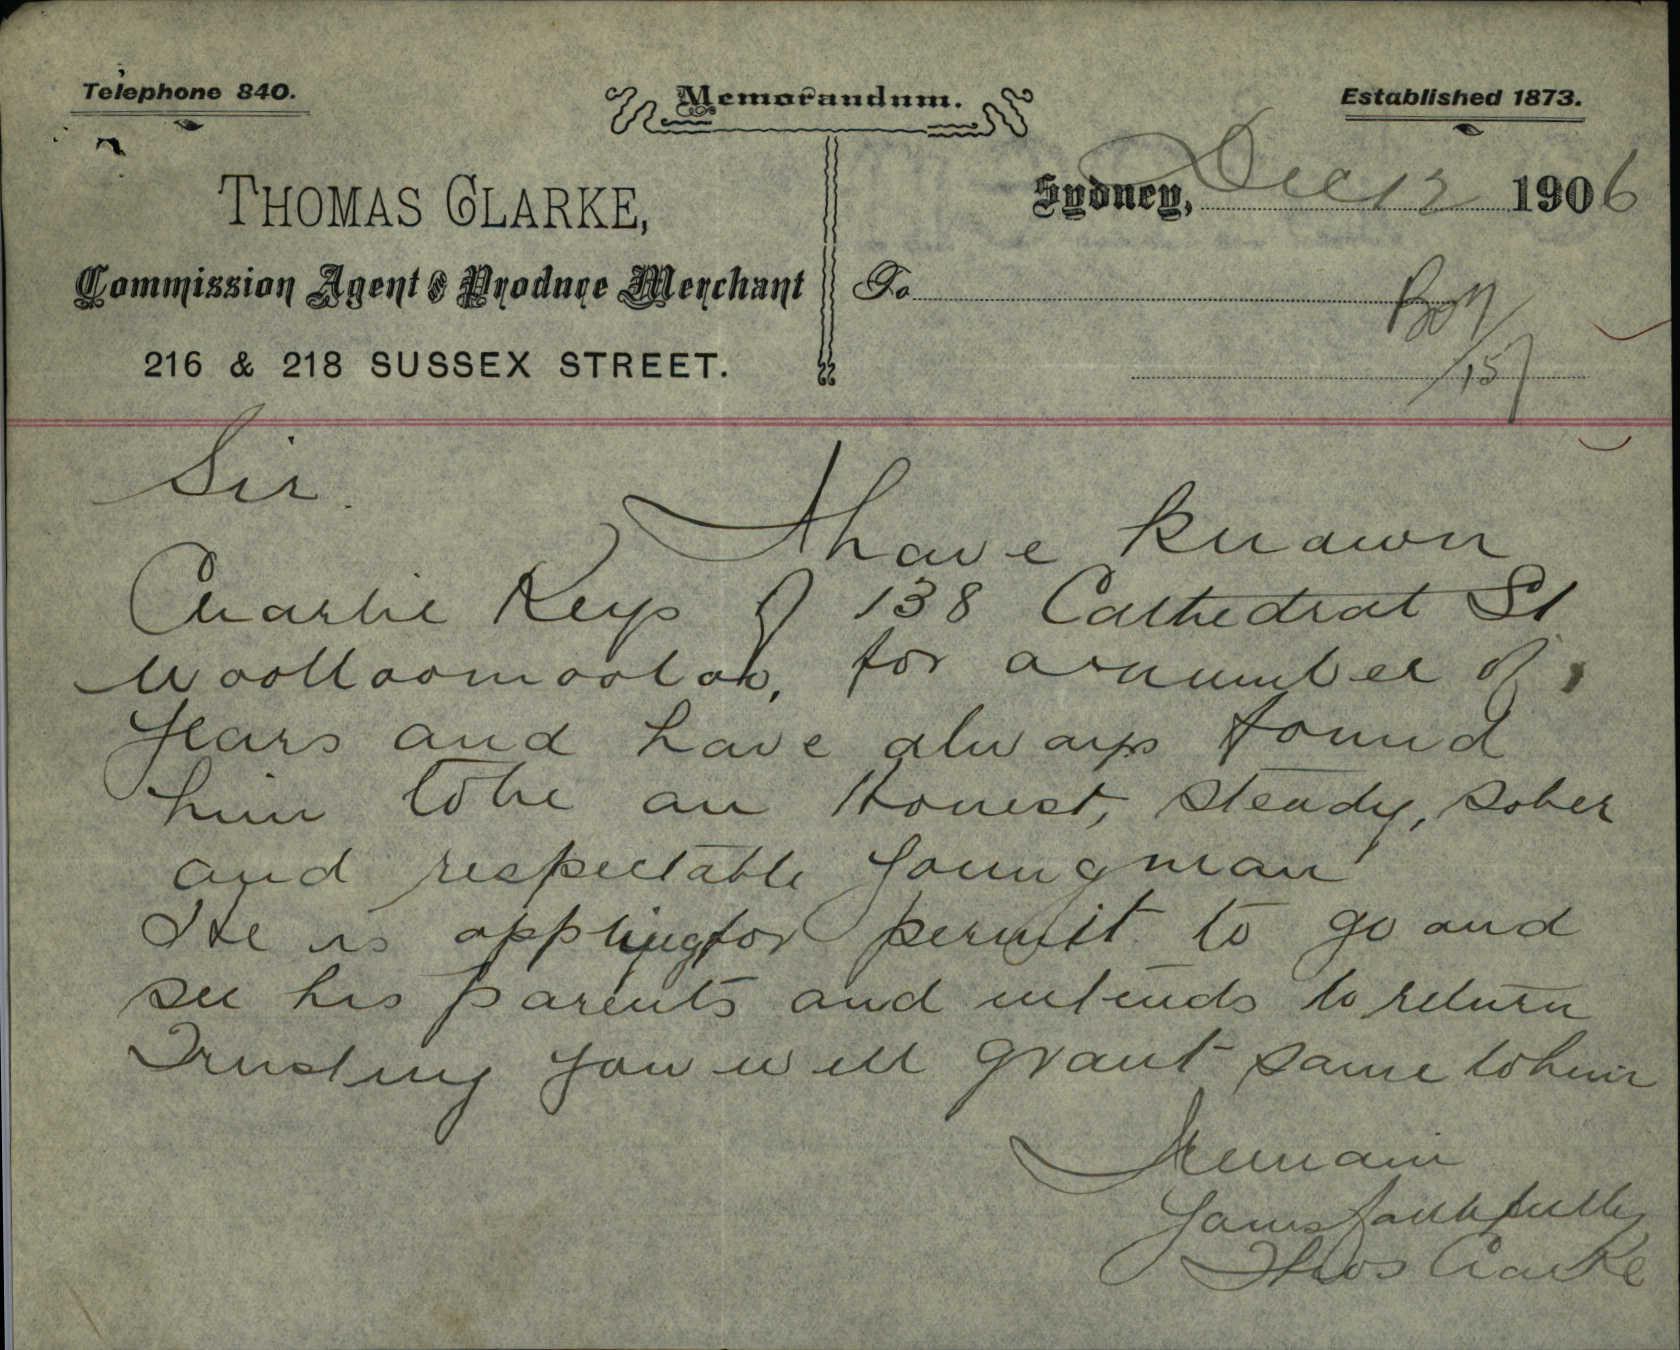 Telephone 840.
Memorandum.
Established 1873.
THOMAS CLARKE,
Commission Agent & Produce Merchant
216 & 218 SUSSEX STREET.
Sydney, Dec 12 1906
To
Boy
/15/
Sir.
I have known
Charlie Keys of 138 Cathedral St
Woolloomooloo, for a number of
years and have always found
him to be an Honest, steady, sober
and respectable young man
He is applying for permit to go and
see his parents and intends to return
Trusting you will grant same to him
I remain
Yours faithfully
Thos Clarke